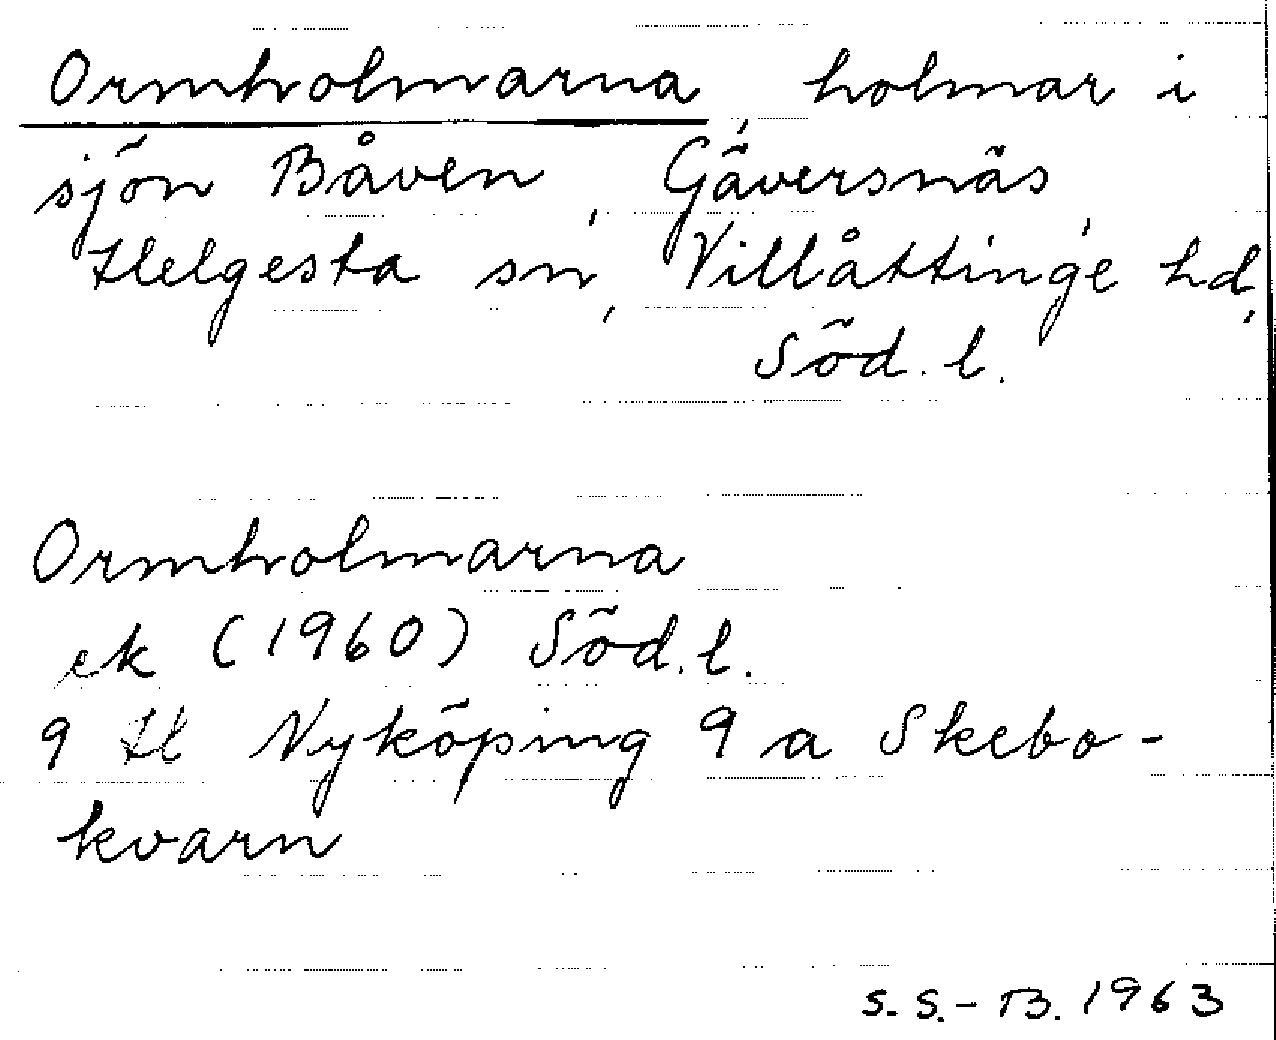 Ormholmarna, holmar i
sjön Båven, Gäversnäs,
Helgesta sn, Villåttinge hd,
Söd. l.
Ormholmarna
ek (1960) Söd. l.
9 H Nyköping 9 a Skebo-
kvarn
S. S.-B. 1963